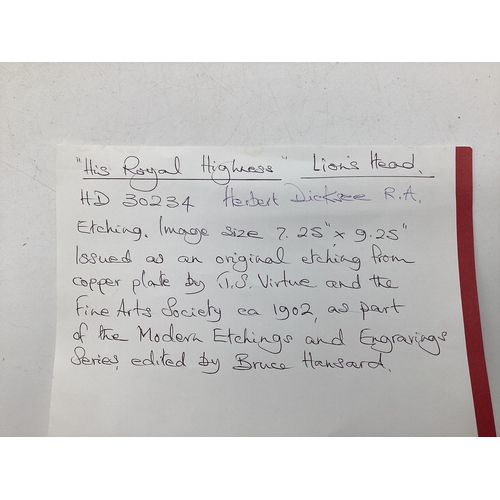 "His Royal Highness" Lion's Head.
HD 30234 Herbert Dicksee R.A.
Etching. Image size 7.25" x 9.25"
Issued as an original etching from
copper plate by J.S. Virtue and the
Fine Arts Society ca 1902, as part
of the Modern Etchings and Engravings
Series, edited by Bruce Hansard.